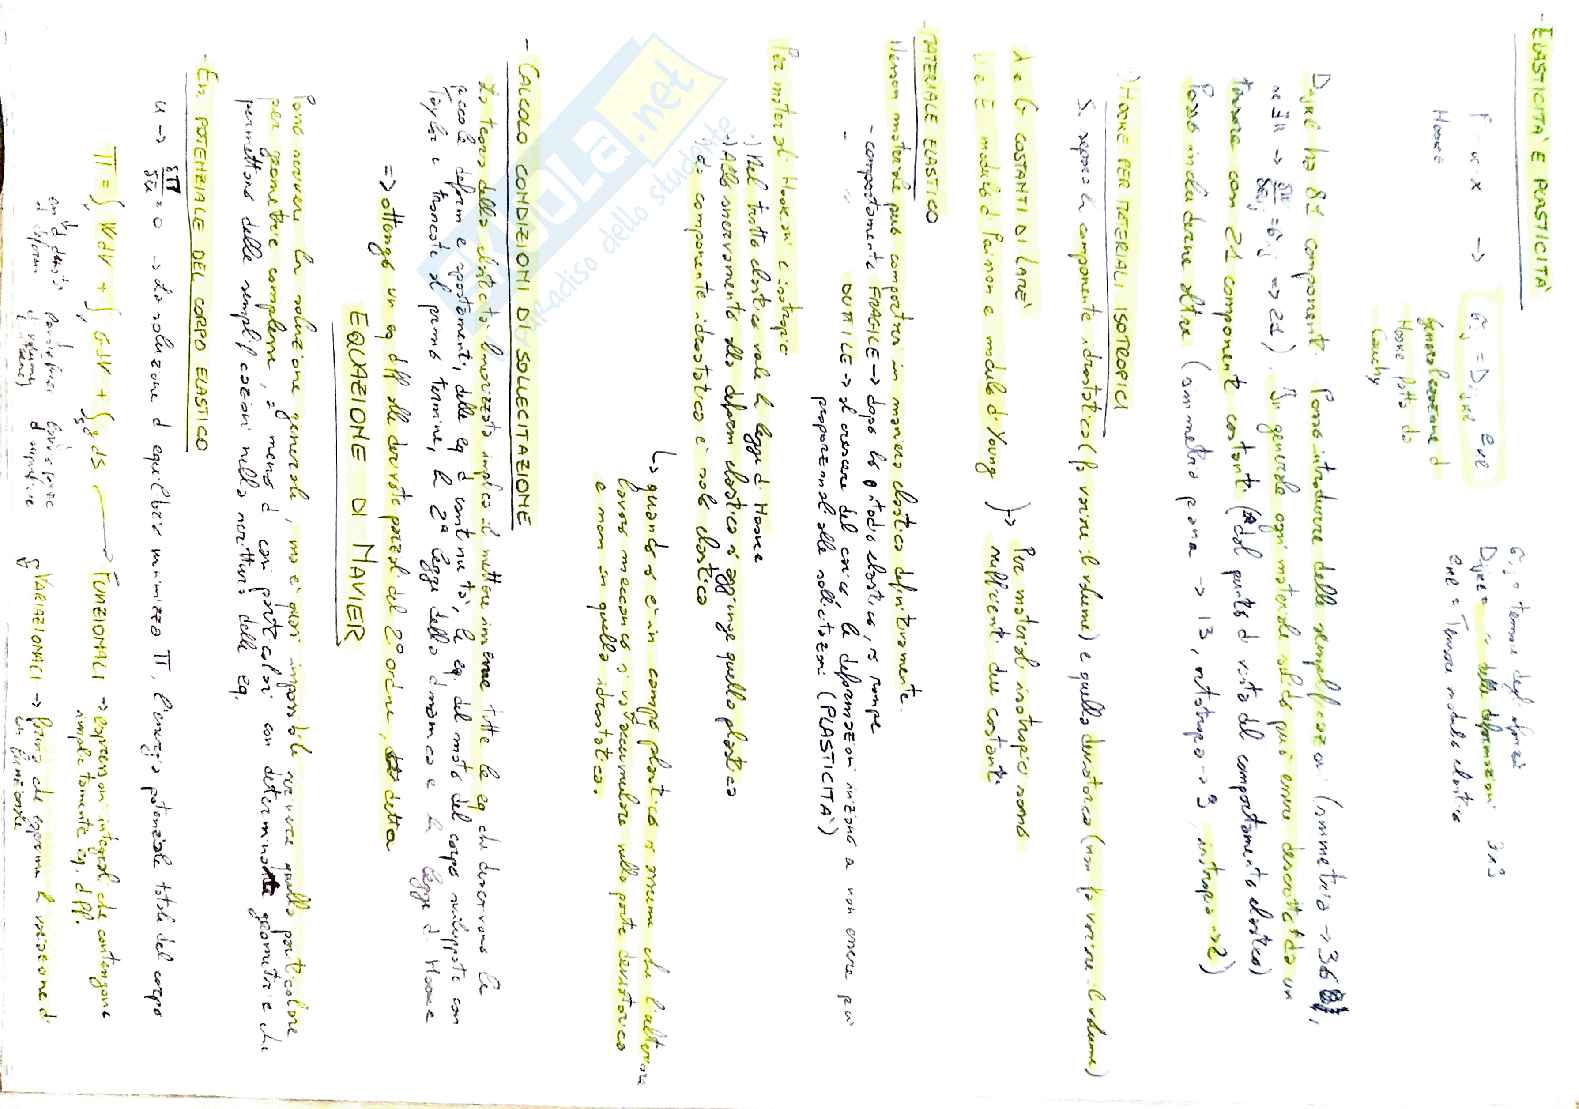 - ELASTICITA' E PLASTICITA'
F = K·X → σij = Dijkl εkl
Hooke
generalizzazione di
Hooke fatta da
Cauchy
σij = tensore degli sforzi
Dijkl =
εkl =
Dijkl ha 81 componenti. Posso introdurre delle semplificazioni (simmetria → 36,
se ∃ π → δπ/δεij = σij => 21). In generale ogni materiale solido può essere descritto da un
tensore con 21 componenti costanti (dal punto di vista del comportamento elastico)
Posso includerne altre (simmetria piana → 13, ortotropo → 9, isotropo → 2)
) HOOKE PER MATERIALI ISOTROPICI
Si separa la componente idrostatica (fa variare il volume) e quella deviatorica (non fa variare il volume)
λ e G COSTANTI DI LAMÈ
ν e E modulo di Poisson e modulo di Young
}→ Per materiali isotropici sono
sufficienti due costanti
- MATERIALE ELASTICO
Nessun materiale può comportarsi in maniera elastica definitivamente.
- comportamento FRAGILE → dopo lo stadio elastico, si rompe
- " " DUTTILE → al crescere del carico, le deformazioni iniziano a non essere più
proporzionali alle sollecitazioni (PLASTICITÀ)
Per materiali Hookeani e isotropi
·) Nel tratto elastico vale la legge di Hooke
·) Allo snervamento alla deform elastica si aggiunge quella plastica
·) La componente idrostatica è solo elastica
↳ quando si è in campo plastico si assume che l'ulteriore
lavoro meccanico si va accumulare nella parte deviatorica
e non in quella idrostatica.
- CALCOLO CONDIZIONI DI SOLLECITAZIONE
La teoria della elasticità linearizzata implica il mettere insieme tutte le eq che descrivono le
piccole deform e spostamenti, delle eq di continuità, le eq. del moto del corpo sviluppate con
Taylor e troncate al primo termine, la 2ª legge della dinamica e la legge di Hooke
=> ottengo un eq diff alle derivate parziali del 2° ordine, detta
EQUAZIONE DI NAVIER
Posso scrivere la soluzione generale, ma è quasi impossibile scrivere quella particolare
per geometrie complesse, a meno di casi particolari con determinate geometrie che
permettono delle semplificazioni nella scrittura delle eq.
- EN. POTENZIALE DEL CORPO ELASTICO
u → δπ/δu = 0 → La soluzione di equilibrio minimizza π, l'energia potenziale totale del corpo
π = ∫v WdV + ∫v GdV + ∫s g dS → FUNZIONALI → espressioni integrali che contengono
implicitamente eq. diff.
densità
di deform
parte forze
di volume
forze
di superficie
VARIAZIONALI → Forma che esprime la variazione di
un funzionale
SKUOLA.net
paradiso dello studente